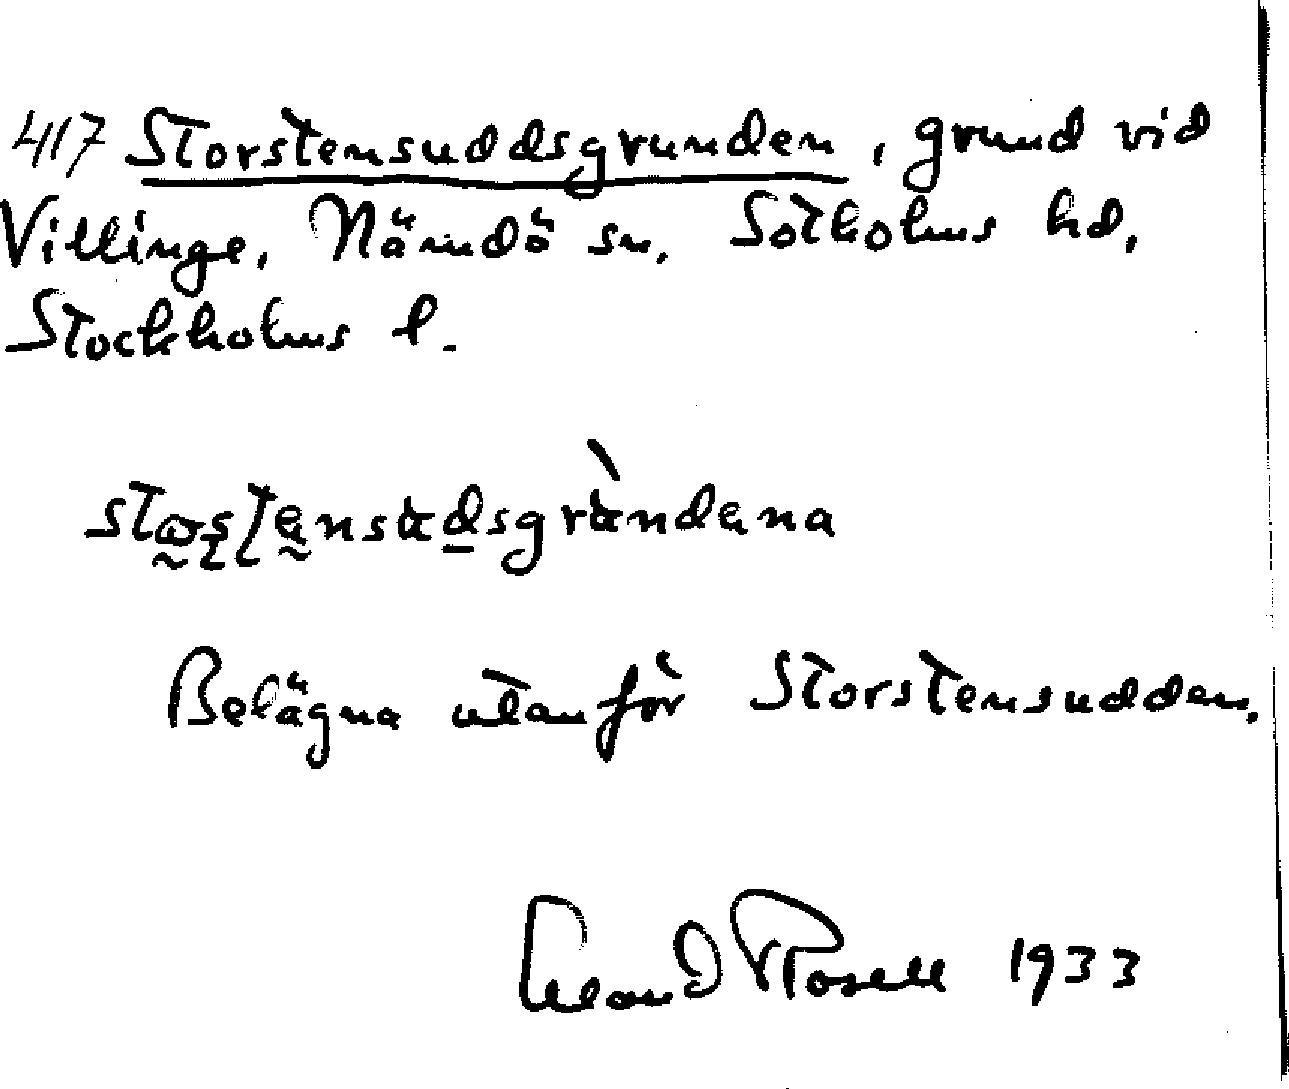 417 Storstensuddsgrunden, grund vid
Villinge, Nämdö sn, Sotholms hd,
Stockholms l.
Belägna utanför Storstensudden.
Rosell 1933